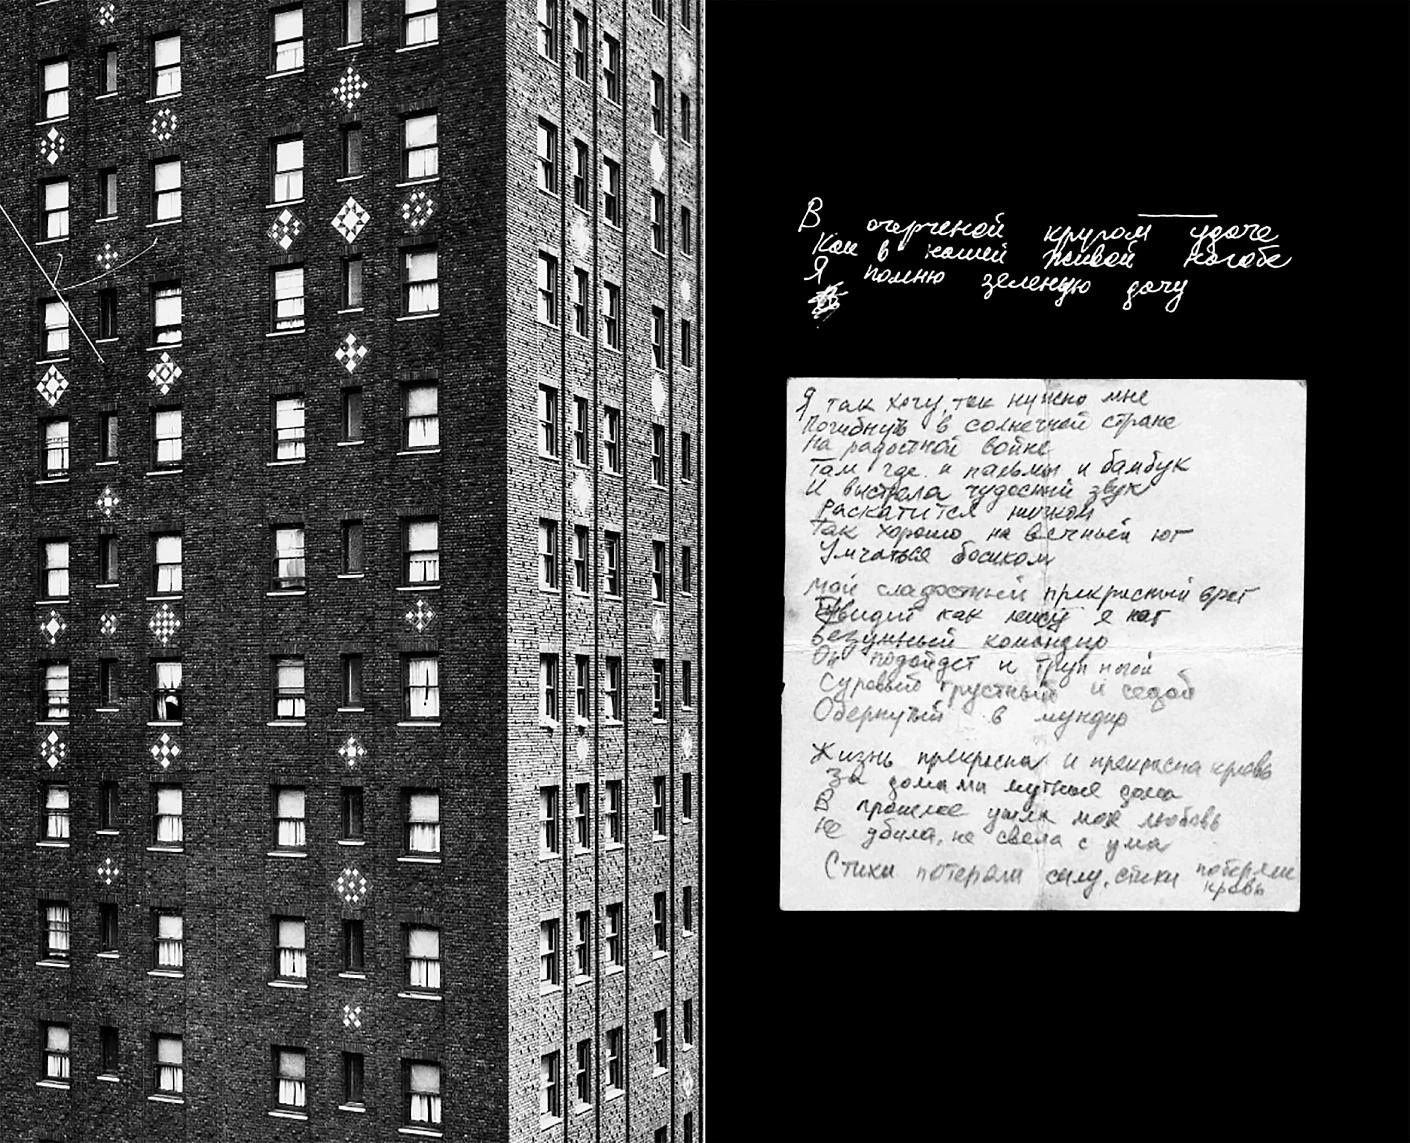 В очерченой кругом удаче
Как в нашей живой
Я помню зеленую дачу
Я так хочу, так нужно мне
Погибнуть в солнечной стране
На радостной войне
Там где и пальмы и бамбук
И выстрела чудостный звук
Раскатится
Так хорошо на вечный юг
Умчаться босиком
Мой сладостный прекрасный враг
Увидит как я наг
Безумный командир
Он подойдет и труп ногой
Суровый грустный и седой
Обернутый в мундир
Жизнь прекрасна и прекрасна кровь
За домами мутные дома
В прошлое ушла моя любовь
Не убила, не свела с ума
Стихи потеряли силу, стихи потеряли
кровь